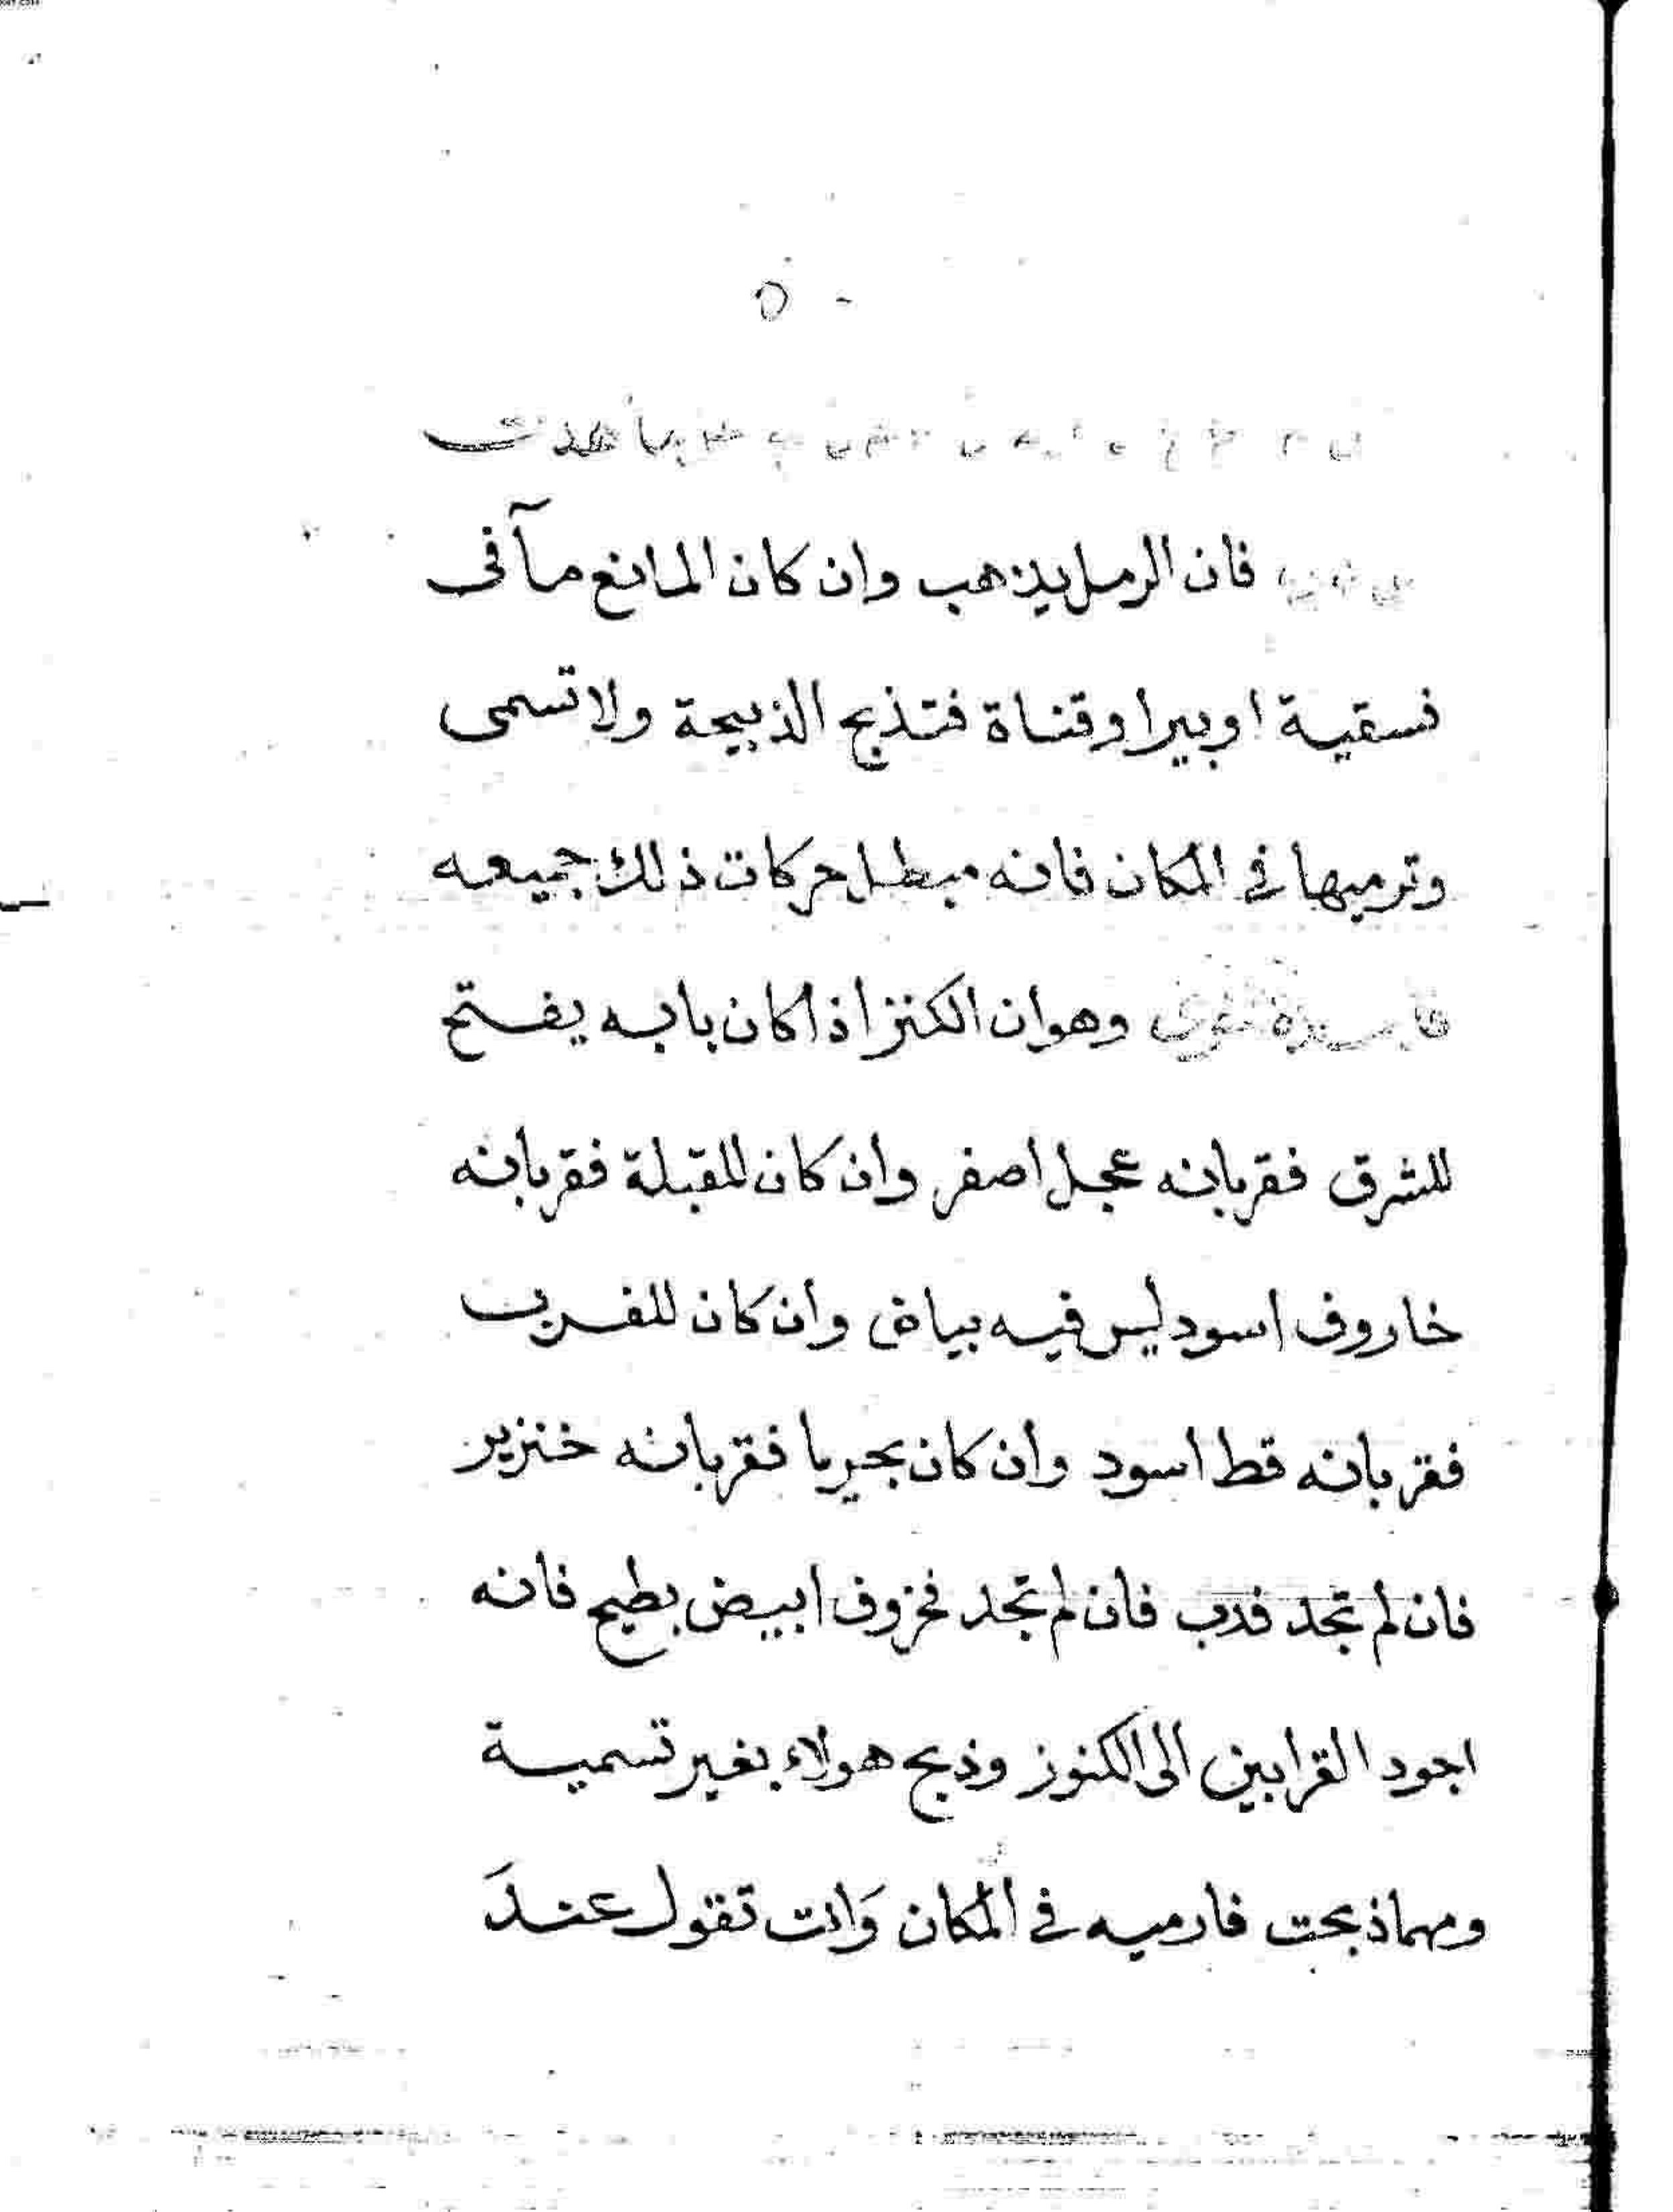 فان الرمل يذهب وان كان المانع مآ فى
فسقية او بيرا وقناة فتذبح الذبيحة ولا تسمى
وترميها في المكان فانه مبطل حركات ذلك جميعه
وهو ان الكنز اذا كان بابه يفتح
للشرق فقربانه عجل اصفر وان كان للقبلة فقربانه
خاروف اسود ليس فيه بياض وان كان للغرب
فقربانه قط اسود وان كان بحريا فقربانه خنزير
فان لم تجد فدب فان لم تجد فخروف ابيض بطيح فانه
اجود القرابين الى الكنوز وذبح هولاء بغير تسمية
ومهما ذبحت فارميه في المكان وَانت تقول عندَ